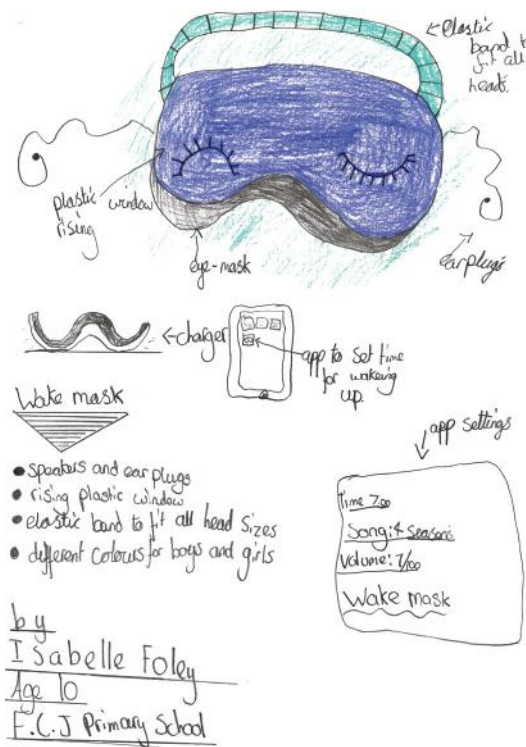 elastic
band to
fit all
heads.
plastic window
rising
eye-mask
earplugs
←charger
app to set time
for wakeing
up.
Wake mask
• speakers and ear plugs
• rising plastic window
• elastic band to fit all head sizes
• different colours for boys and girls
app settings
Time 7:00
Song: 4 Seasons
Volume: 7/00
Wake mask
by
Isabelle Foley
Age 10
F.C.J Primary School